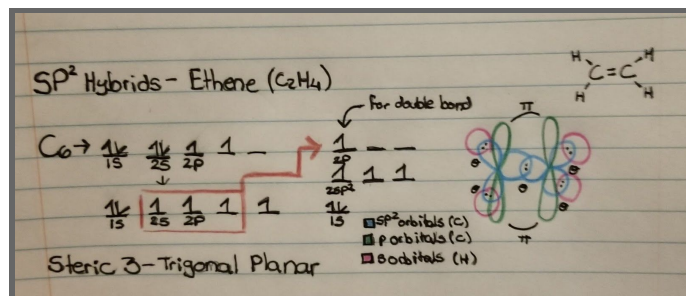 SP² Hybrids - Ethene (C₂H₄)
H H
C=C
H H
For double bond
C₆→ 1s 2s 2p
2p
2sp²
1s 2s 2p
1s
π
σ σ
σ
σ σ
π
sp² orbitals (C)
p orbitals (C)
s orbitals (H)
Steric 3-Trigonal Planar